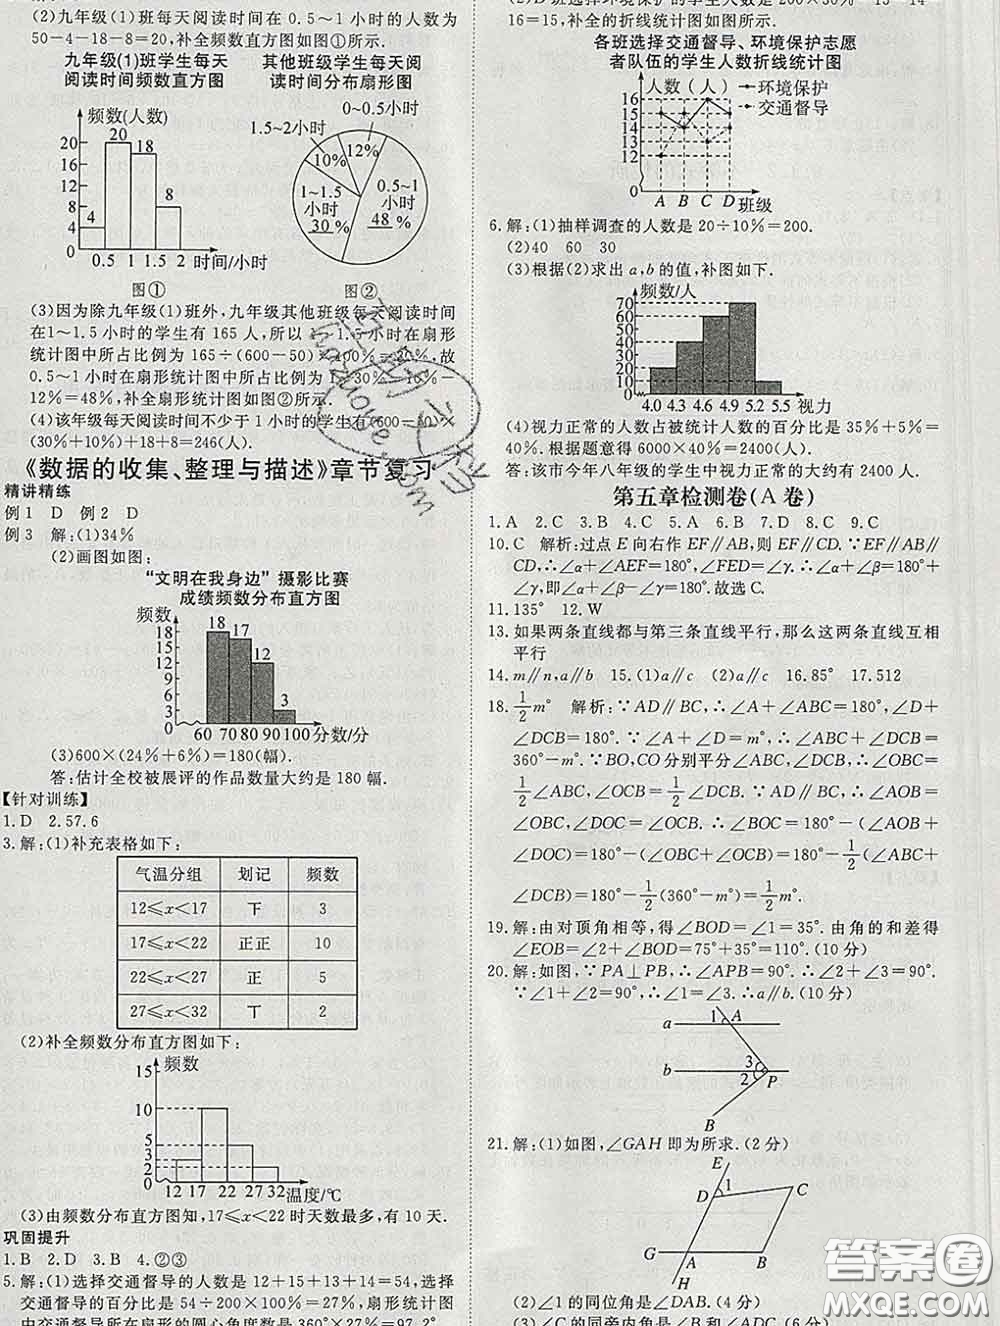 (2)九年级(1)班每天阅读时间在 0.5～1 小时的人数为
50-4-18-8=20,补全频数直方图如图①所示.
九年级(1)班学生每天
阅读时间频数直方图
其他班级学生每天阅
读时间分布扇形图
频数(人数)
20
16
12
8
4
0
4
20
18
8
0.5 1 1.5 2 时间/小时
图①
0～0.5小时
1.5～2小时
12%
10%
1～1.5
小时
30%
0.5～1
小时
48%
图②
(3)因为除九年级(1)班外,九年级其他班级每天阅读时间
在1～1.5小时的学生有165人,所以1～1.5小时在扇形
统计图中所占比例为165÷(600-50)×100%=30%,故
0.5～1小时在扇形统计图中所占比例为1-30%-10%-
12%=48%,补全扇形统计图如图②所示.
(4)该年级每天阅读时间不少于1小时的学生有(600-50)×
(30%+10%)+18+8=246(人).
《数据的收集、整理与描述》章节复习
精讲精练
例1 D 例2 D
例3 解:(1)34%
(2)画图如图:
“文明在我身边”摄影比赛
成绩频数分布直方图
频数
18
15
12
9
6
3
0
18
17
12
3
60 70 80 90 100 分数/分
(3)600×(24%+6%)=180(幅).
答:估计全校被展评的作品数量大约是180幅.
【针对训练】
1.D 2.57.6
3.解:(1)补充表格如下:
气温分组 划记 频数
12≤x<17 下 3
17≤x<22 正正 10
22≤x<27 正 5
27≤x<32 丅 2
(2)补全频数分布直方图如下:
频数
15
10
5
3
2
0
12 17 22 27 32 温度/℃
(3)由频数分布直方图知,17≤x<22时天数最多,有10天.
巩固提升
1.B 2.D 3.B 4.②③
5.解:(1)选择交通督导的人数是12+15+13+14=54,选择
交通督导的百分比是54÷200×100%=27%,扇形统计图
中交通督导所在扇形的圆心角度数是360°×27%=97.2°.
16=15,补全的折线统计图如图所示.
各班选择交通督导、环境保护志愿
者队伍的学生人数折线统计图
人数(人)
环境保护
交通督导
16
15
14
13
12
0
A B C D 班级
6.解:(1)抽样调查的人数是20÷10%=200.
(2)40 60 30
(3)根据(2)求出a,b的值,补图如下.
频数/人
70
60
50
40
30
20
10
0
4.0 4.3 4.6 4.9 5.2 5.5
视力
(4)视力正常的人数占被统计人数的百分比是35%+5%=
40%.根据题意得6000×40%=2400(人).
答:该市今年八年级的学生中视力正常的大约有2400人.
第五章检测卷(A卷)
1.A 2.C 3.B 4.C 5.A 6.B 7.D 8.C 9.C
10.C 解析:过点E向右作EF∥AB,则EF∥CD.∵EF∥AB∥
CD,∴∠α+∠AEF=180°,∠FED=∠γ.∴∠α+∠β=180°+
∠γ,即∠α+∠β-∠γ=180°.故选C.
11.135° 12.W
13.如果两条直线都与第三条直线平行,那么这两条直线互相
平行
14.m∥n,a∥b 15.(1)a∥c (2)a∥c 16.85° 17.512
18.1/2m° 解析:∵AD∥BC,∴∠A+∠ABC=180°,∠D+
∠DCB=180°.∵∠A+∠D=m°,∴∠ABC+∠DCB=
360°-m°.∵BO,CO分别平分∠ABC,∠DCB,∴∠OBC=
1/2∠ABC,∠OCB=1/2∠DCB.∵AD∥BC,∴∠AOB=
∠OBC,∠DOC=∠OCB.∴∠BOC=180°-(∠AOB+
∠DOC)=180°-(∠OBC+∠OCB)=180°-1/2(∠ABC+
∠DCB)=180°-1/2(360°-m°)=1/2m°.
19.解:由对顶角相等,得∠BOD=∠1=35°.由角的和差得
∠EOB=∠2+∠BOD=75°+35°=110°.(10分)
20.解:如图,∵PA⊥PB,∴∠APB=90°.∴∠2+∠3=90°.
∵∠1+∠2=90°,∴∠1=∠3.∴a∥b.(10分)
1 A
a
b
3
2
P
B
21.解:(1)如图,∠GAH即为所求.(2分)
E
D 1
C
G
A
B
H
(2)∠1的同位角是∠DAB.(4分)
(3)∠C的同旁内角是∠B,∠ADC.(6分)
答案圈
MXQE.COM